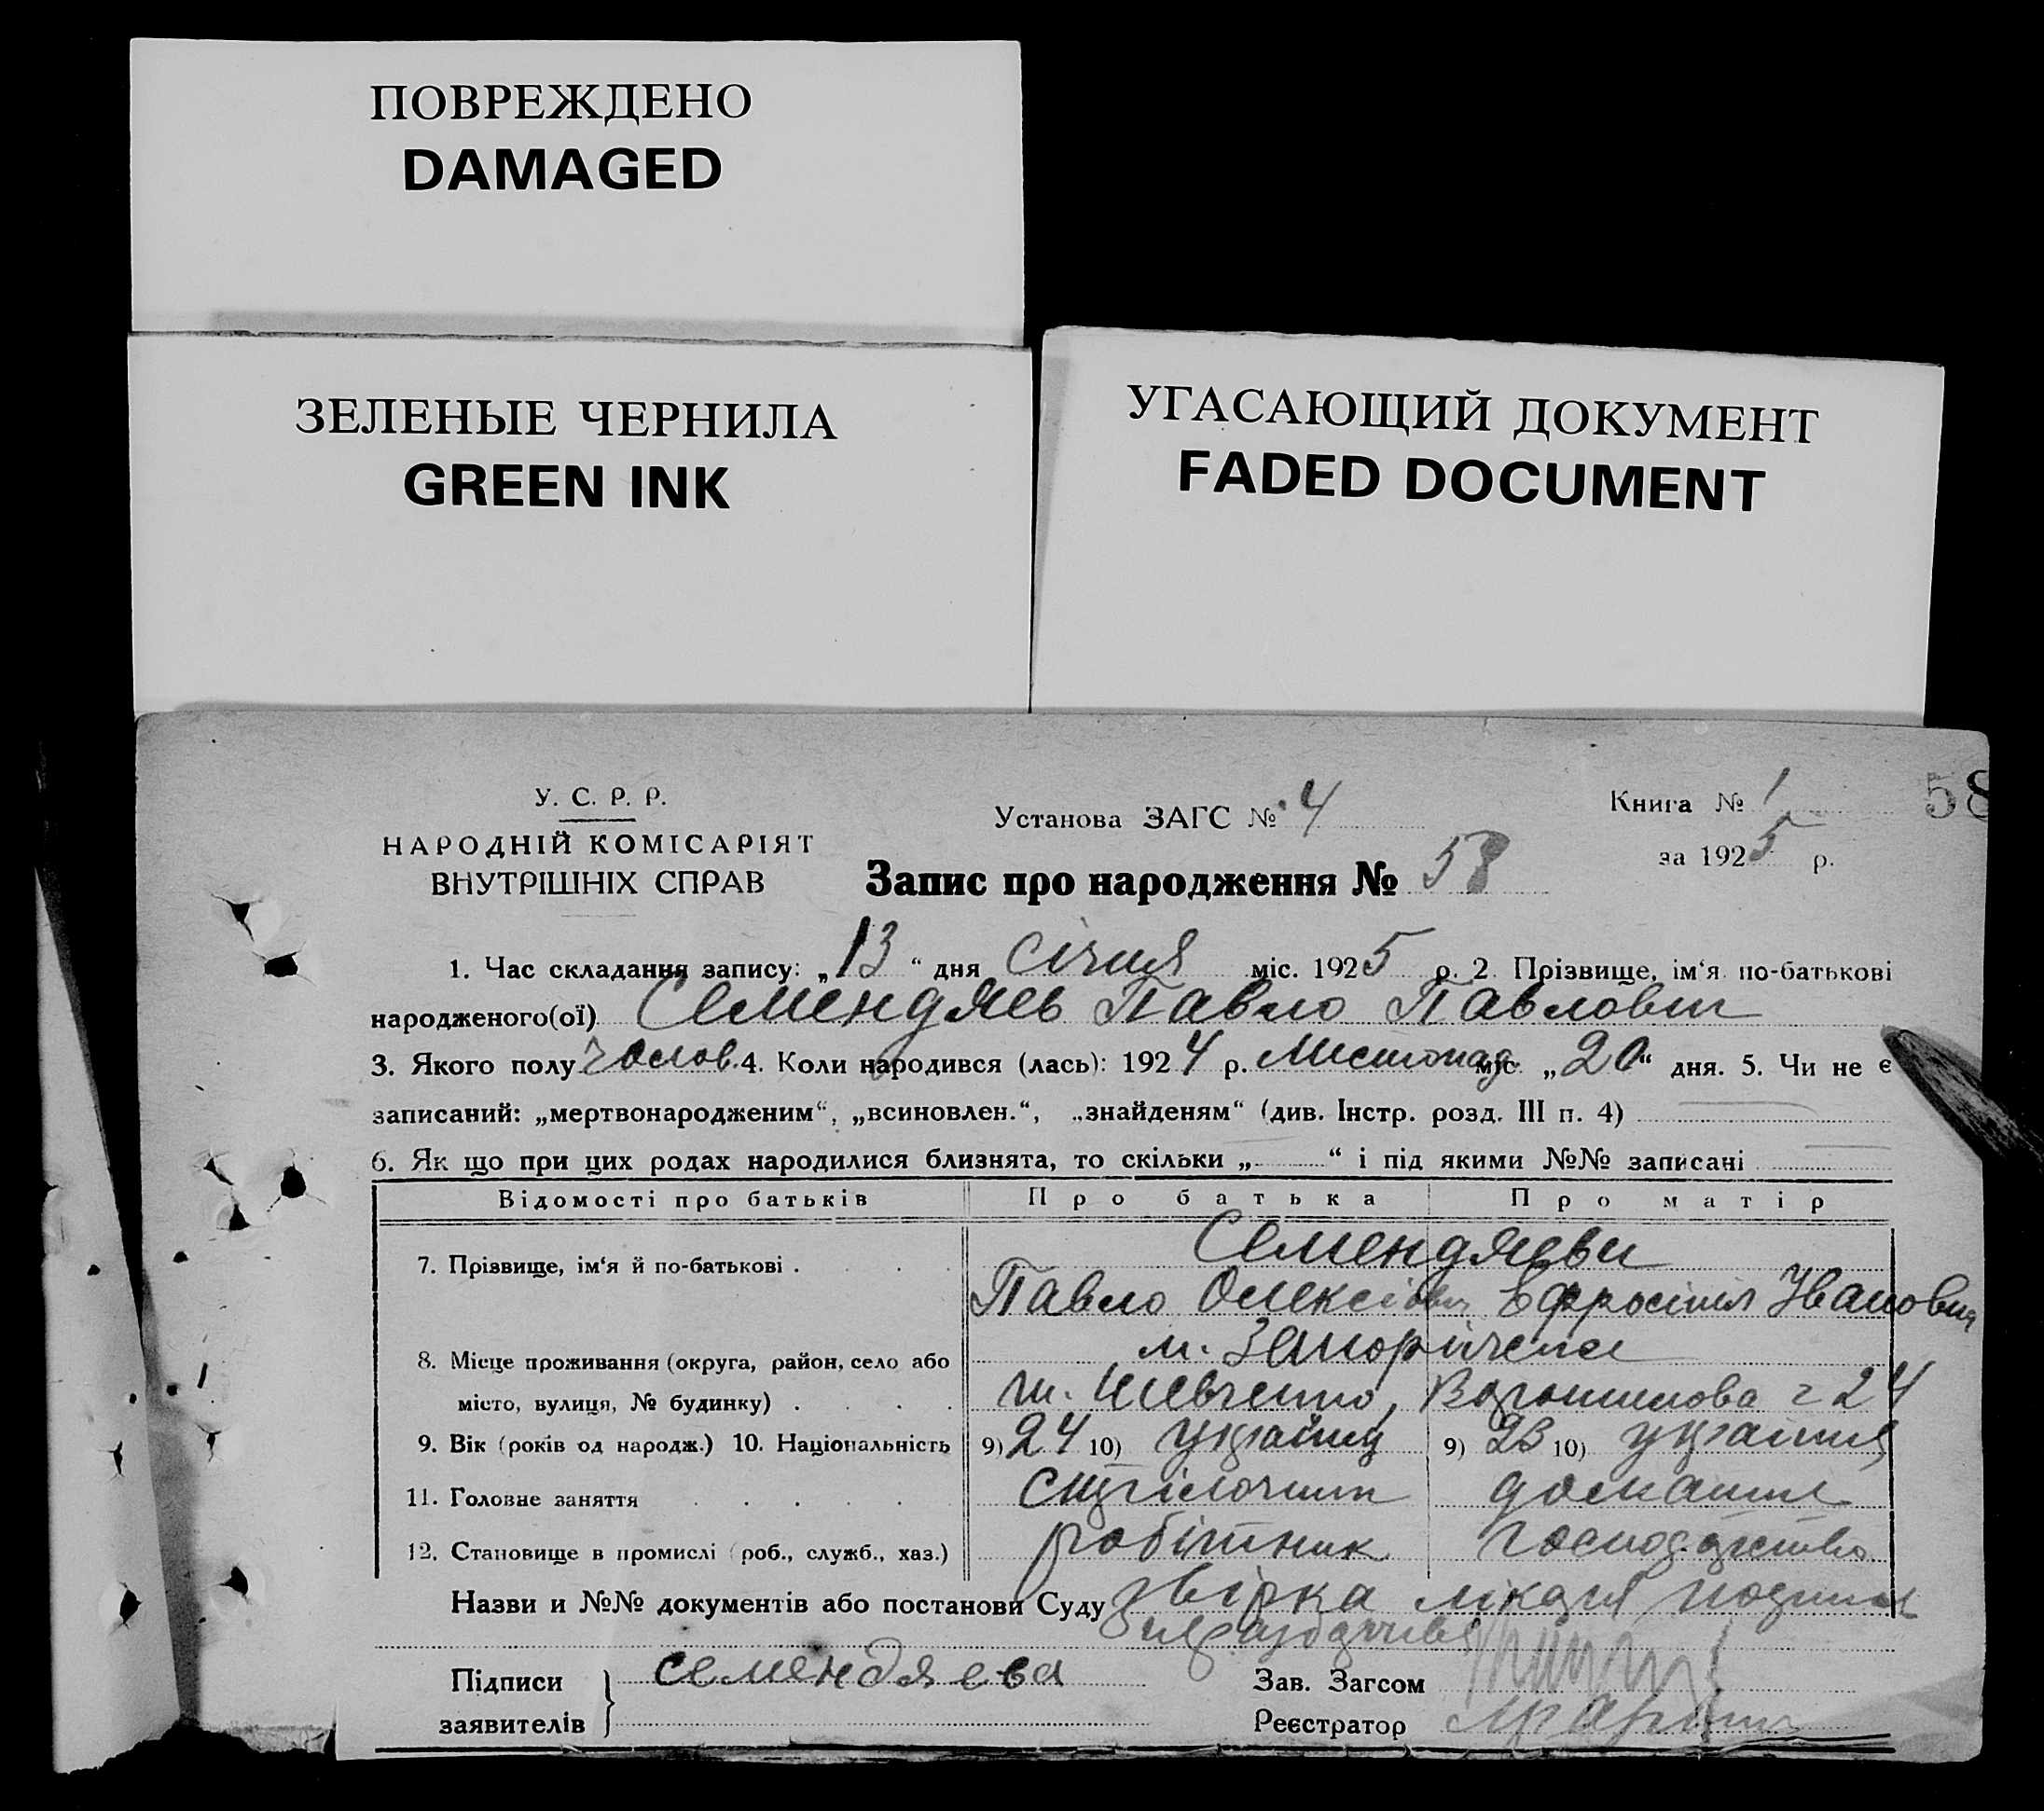 ПОВРЕЖДЕНО
DAMAGED
ЗЕЛЕНЫЕ ЧЕРНИЛА
GREEN INK
УГАСАЮЩИЙ ДОКУМЕНТ
FADED DOCUMENT
У. С. Р. Р.
НАРОДНІЙ КОМІСАРІЯТ
ВНУТРІШНІХ СПРАВ
Установа ЗАГС № 4
Книга № 1
58
за 1925 р.
Запис про народження № 58
1. Час складання запису: „13“ дня січня міс. 1925 р. 2. Прізвище, ім‘я по-батькові
народженого(ої) Семендяев Павло Павлович
3. Якого полу чолов. 4. Коли народився (лась): 1924 р. Листопад міс. „20“ дня. 5. Чи не є
записаний: „мертвонародженим“, „всиновлен.“, „знайденям“ (див. Інстр. розд. III п. 4)
6. Як що при цих родах народилися близнята, то скільки „ “ і під якими №№ записані
Відомості про батьків Про батька Про матір
7. Прізвище, ім‘я й по-батькові . . . . Семендяеви
Павло Олексієвич Ефросинія Івановна
8. Місце проживання (округа, район, село або м.
місто, вулиця, № будинку) . . . . Шевченко, Ворошилова 24
9. Вік (років од народж.) 10. Національність 9) 24 10) українц 9) 23 10)
11. Головне заняття . . . . . домашнє
12. Становище в промислі (роб., служб., хаз.) робітник
Назви и №№ документів або постанови Суду
Підписи
заявителів } Семендяева
Зав. Загсом
Реєстратор